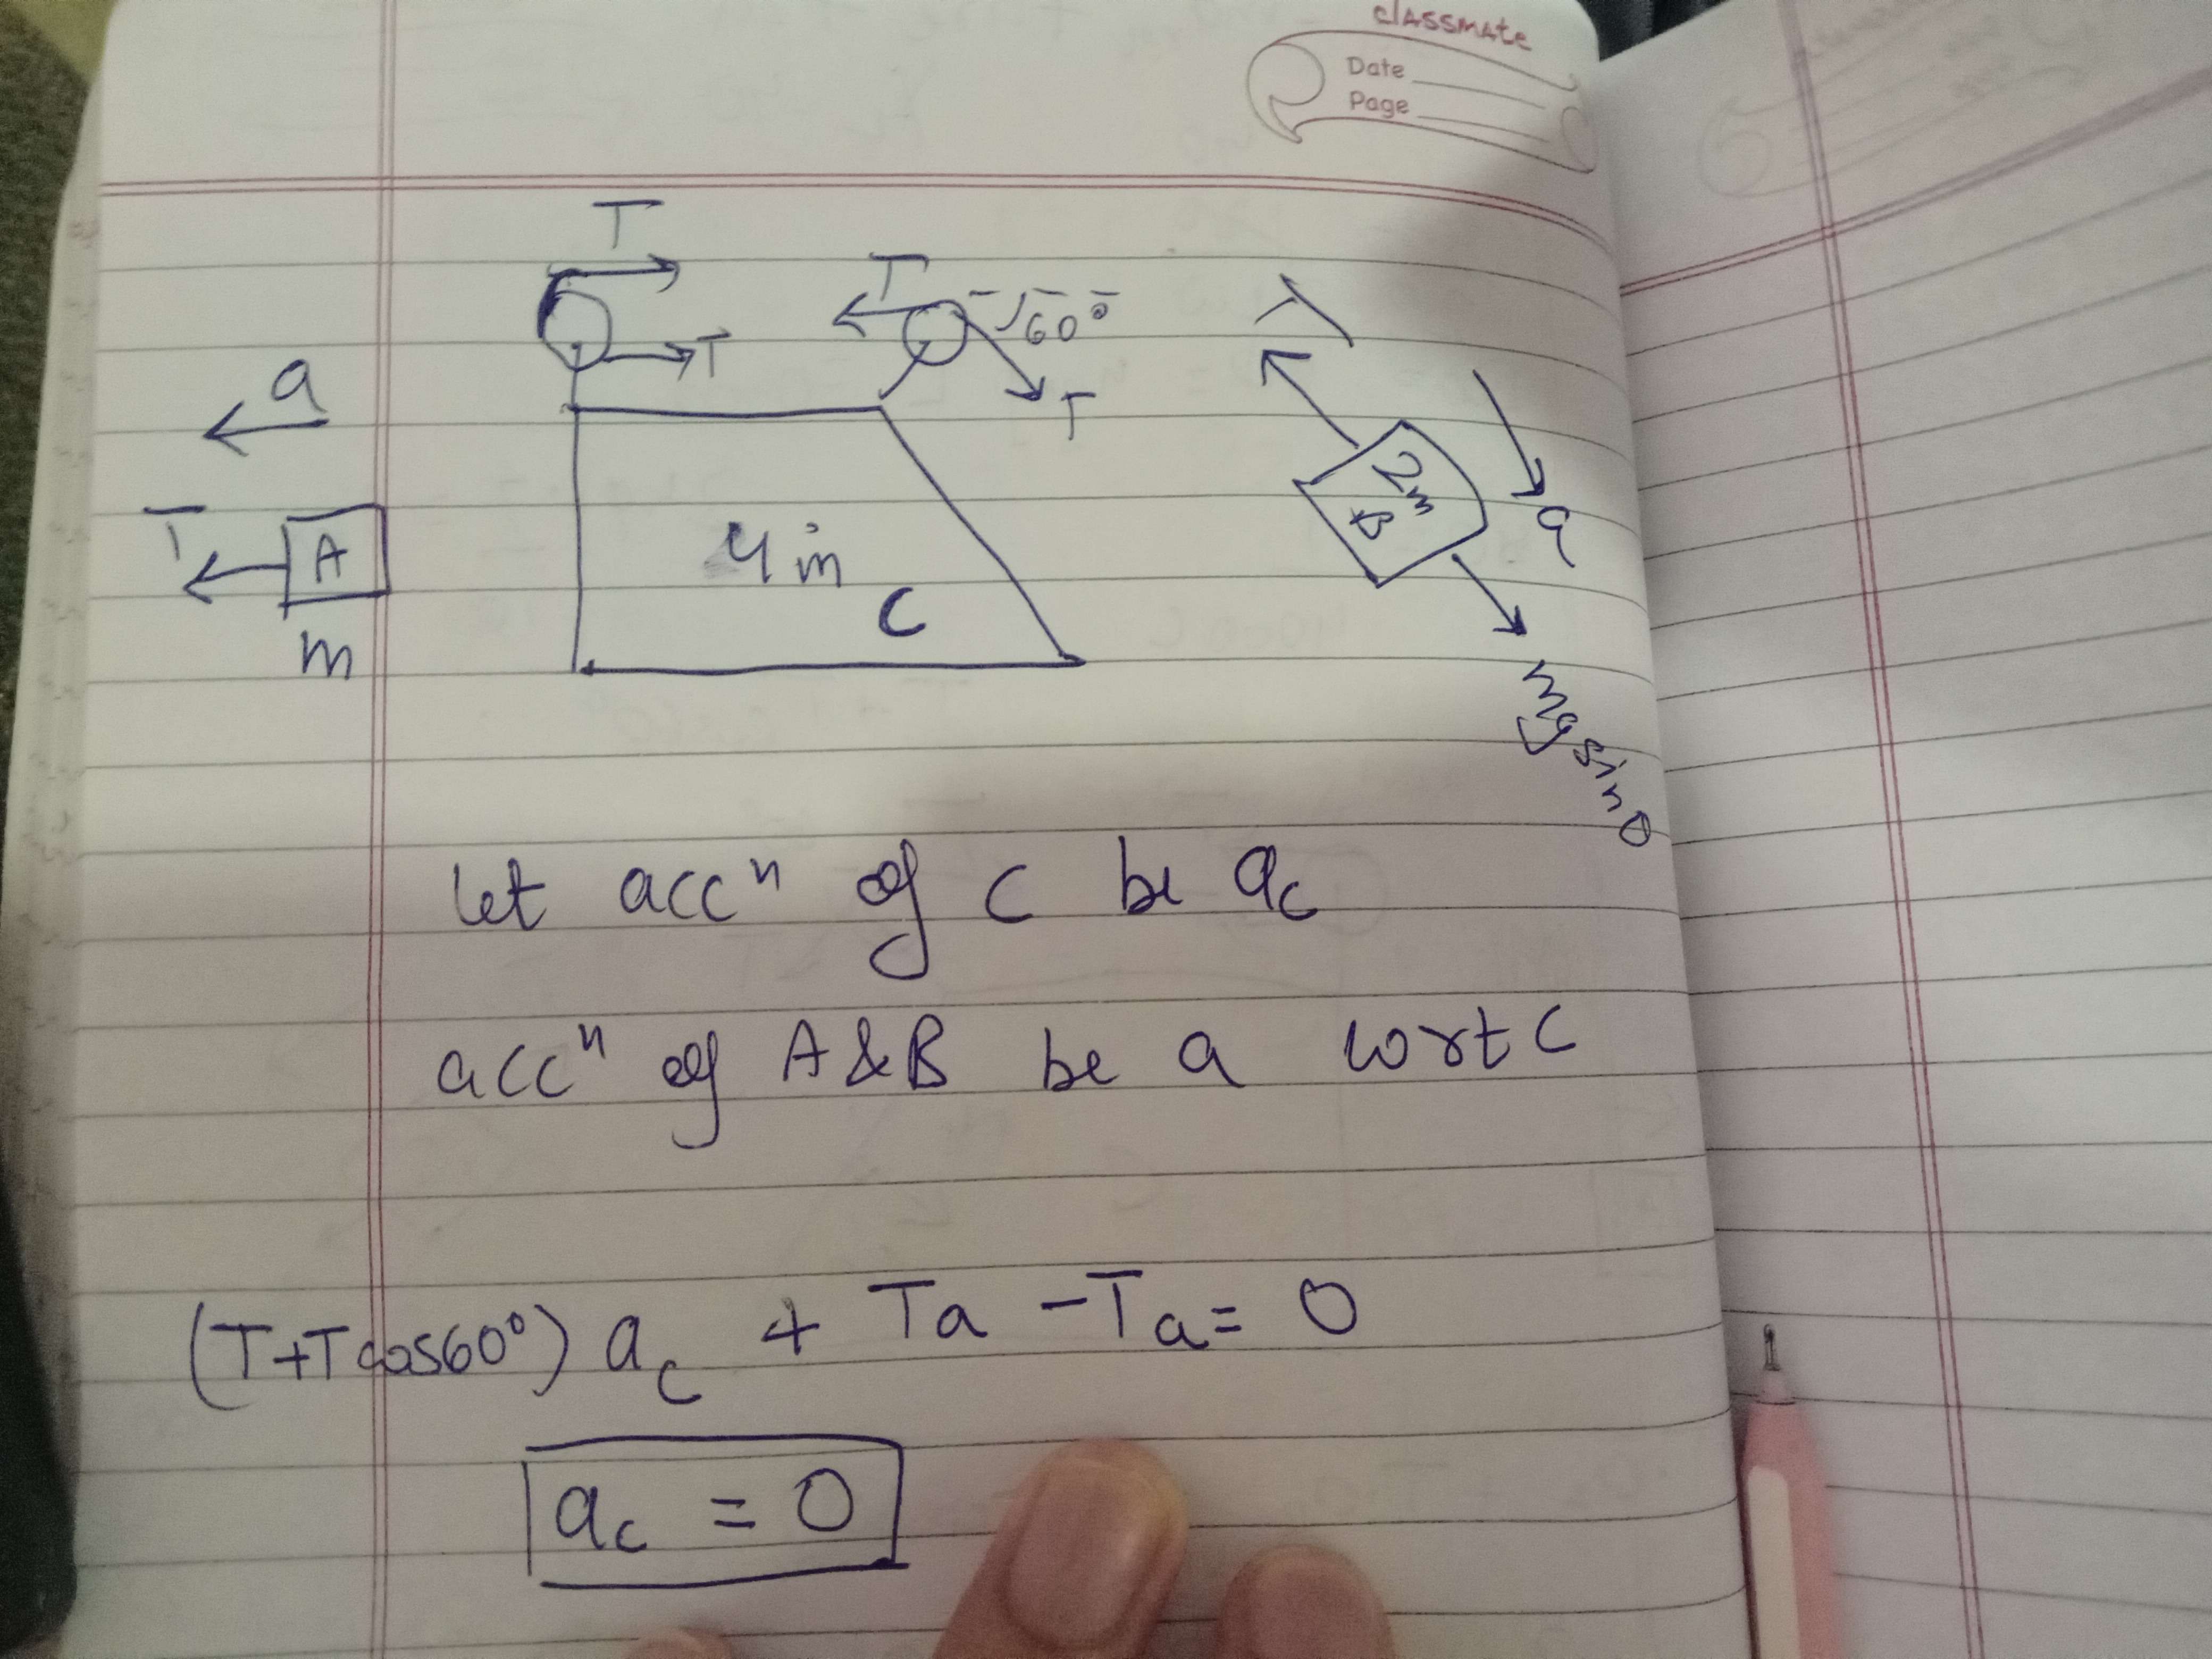 classmate
Date
Page
T
T
60°
a
T
T
T
T
A
m
4m
C
2m
B
a
mg sin θ
let accⁿ of C be a_c
accⁿ of A & B be a wrt C
(T+Tcos60°) a_c + Ta - Ta = 0
a_c = 0